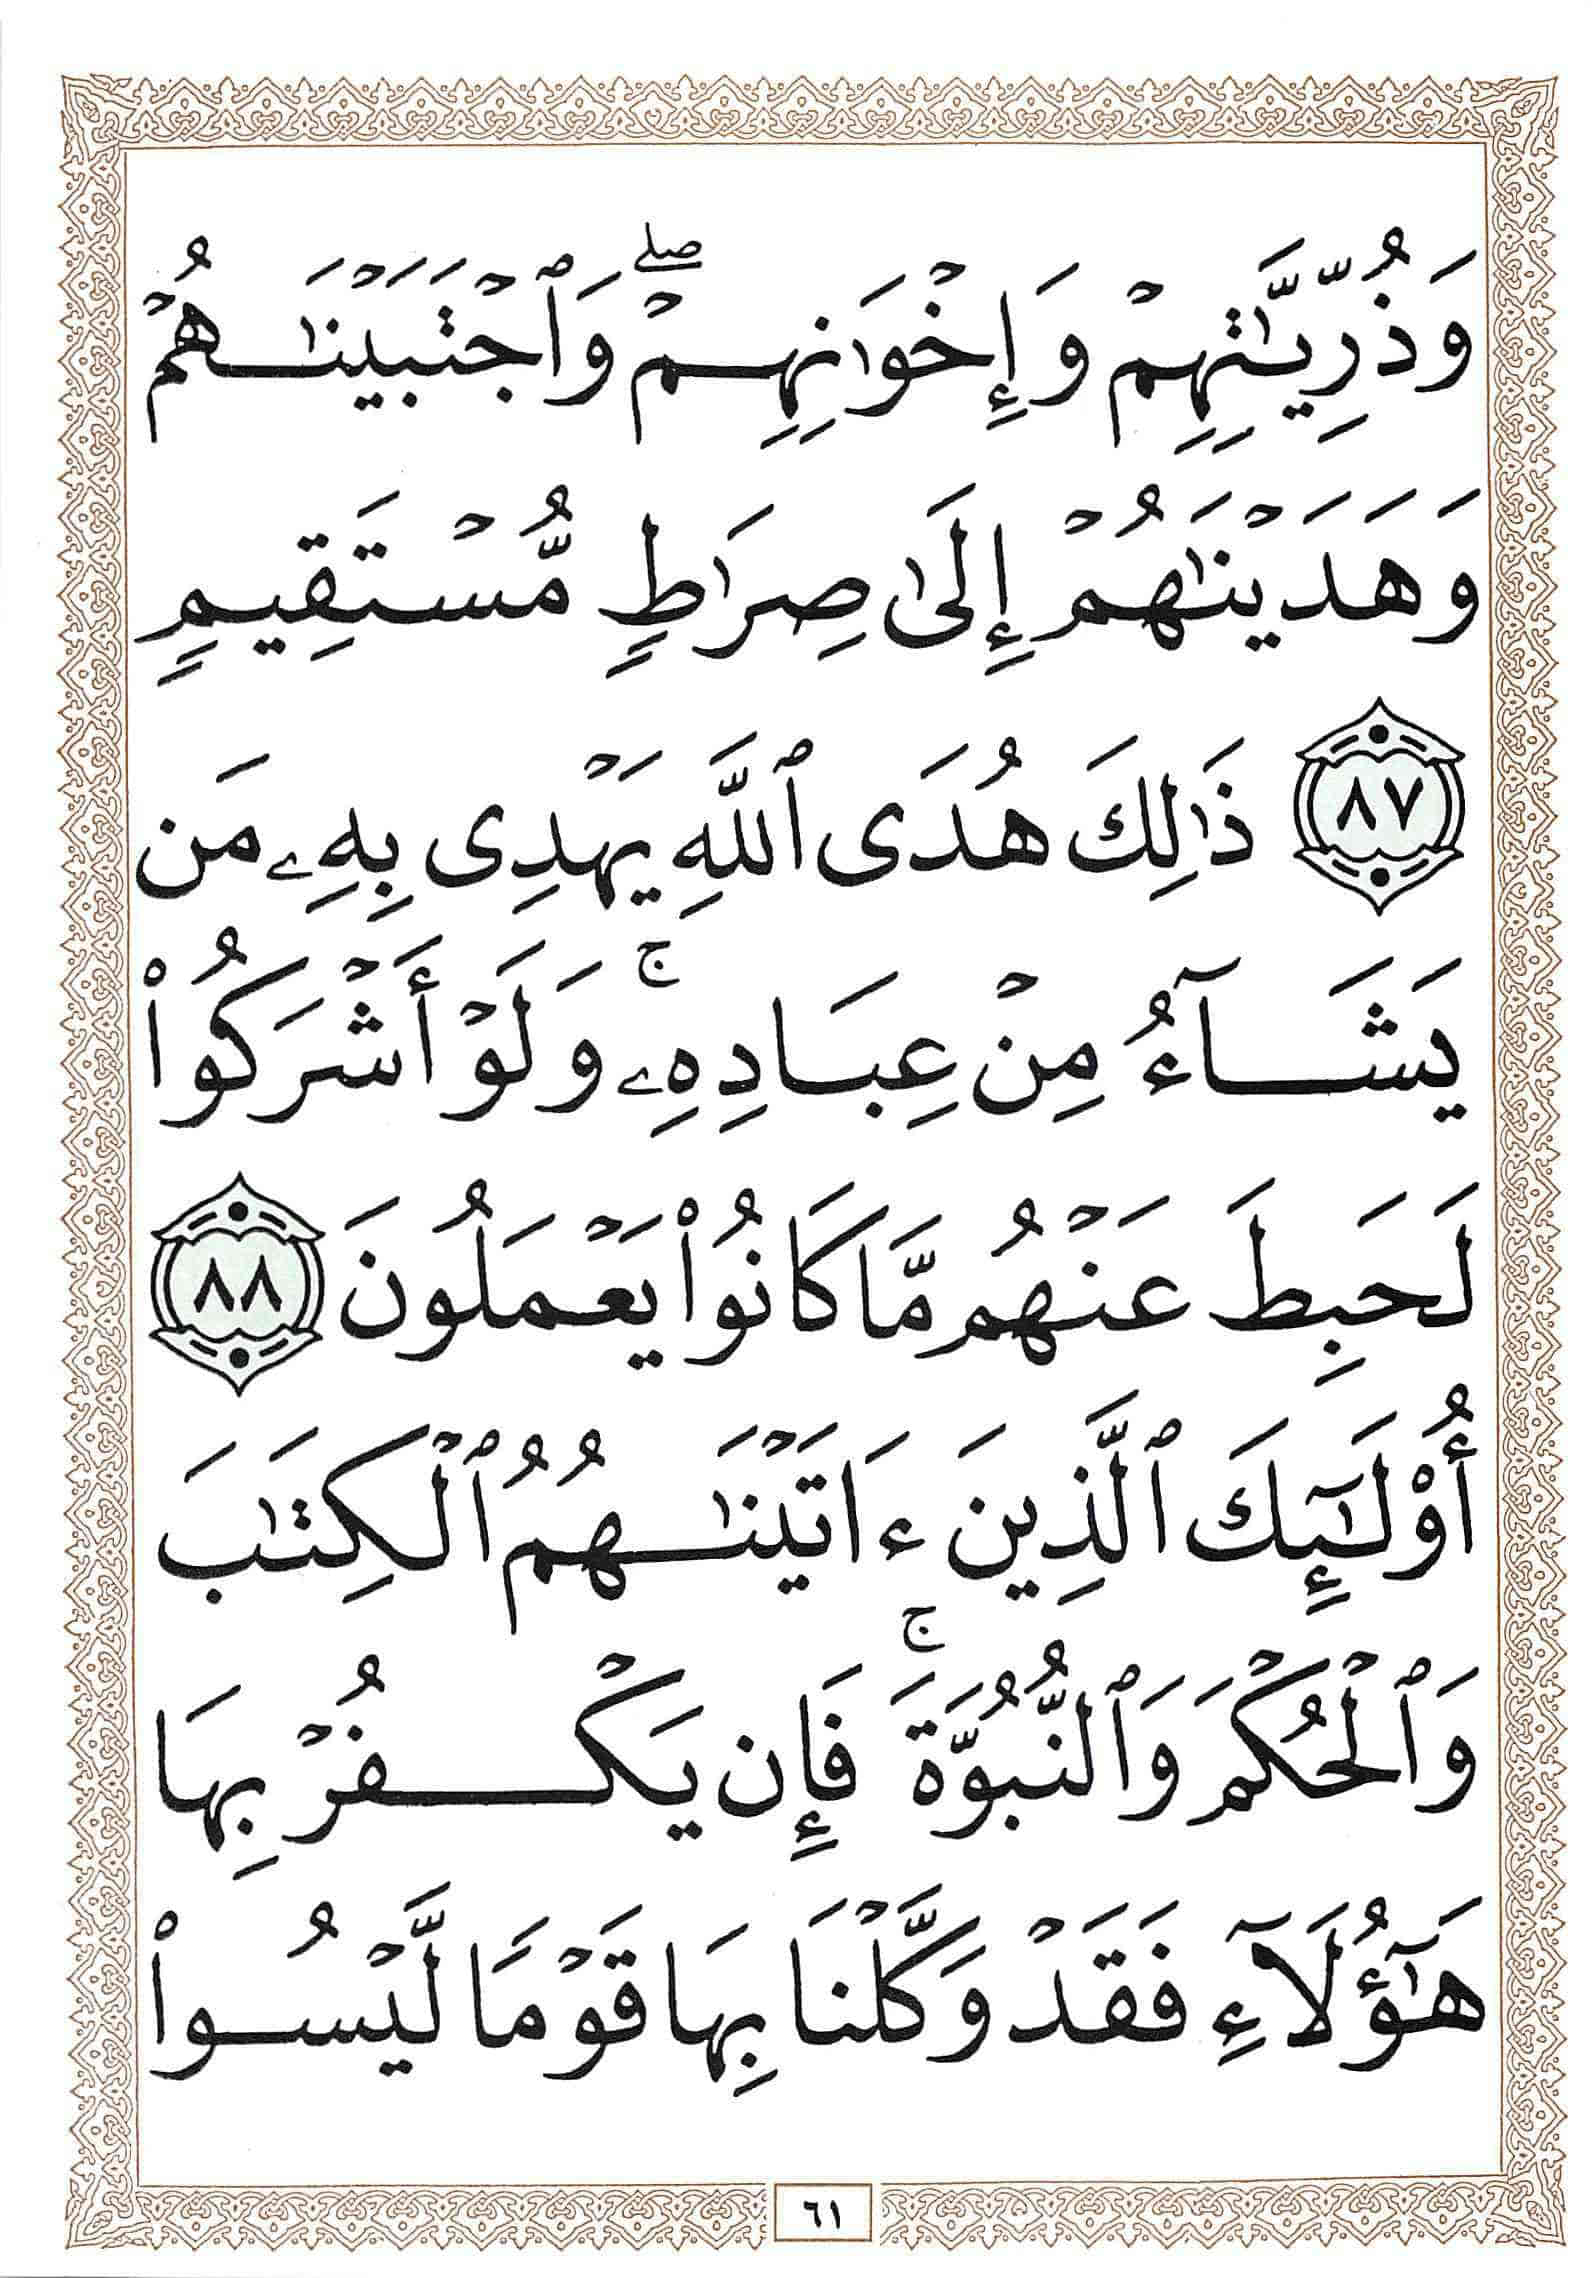 وَذُرِّيَّـٰتِهِمْ وَإِخْوَٰنِهِمْ ۖ وَٱجْتَبَيْنَـٰهُمْ
وَهَدَيْنَـٰهُمْ إِلَىٰ صِرَٰطٍ مُّسْتَقِيمٍ
٨٧ ذَٰلِكَ هُدَى ٱللَّهِ يَهْدِى بِهِۦ مَن
يَشَآءُ مِنْ عِبَادِهِۦ ۚ وَلَوْ أَشْرَكُوا۟
لَحَبِطَ عَنْهُم مَّا كَانُوا۟ يَعْمَلُونَ ٨٨
أُو۟لَـٰٓئِكَ ٱلَّذِينَ ءَاتَيْنَـٰهُمُ ٱلْكِتَـٰبَ
وَٱلْحُكْمَ وَٱلنُّبُوَّةَ ۚ فَإِن يَكْفُرْ بِهَا
هَـٰٓؤُلَآءِ فَقَدْ وَكَّلْنَا بِهَا قَوْمًا لَّيْسُوا۟
٦١